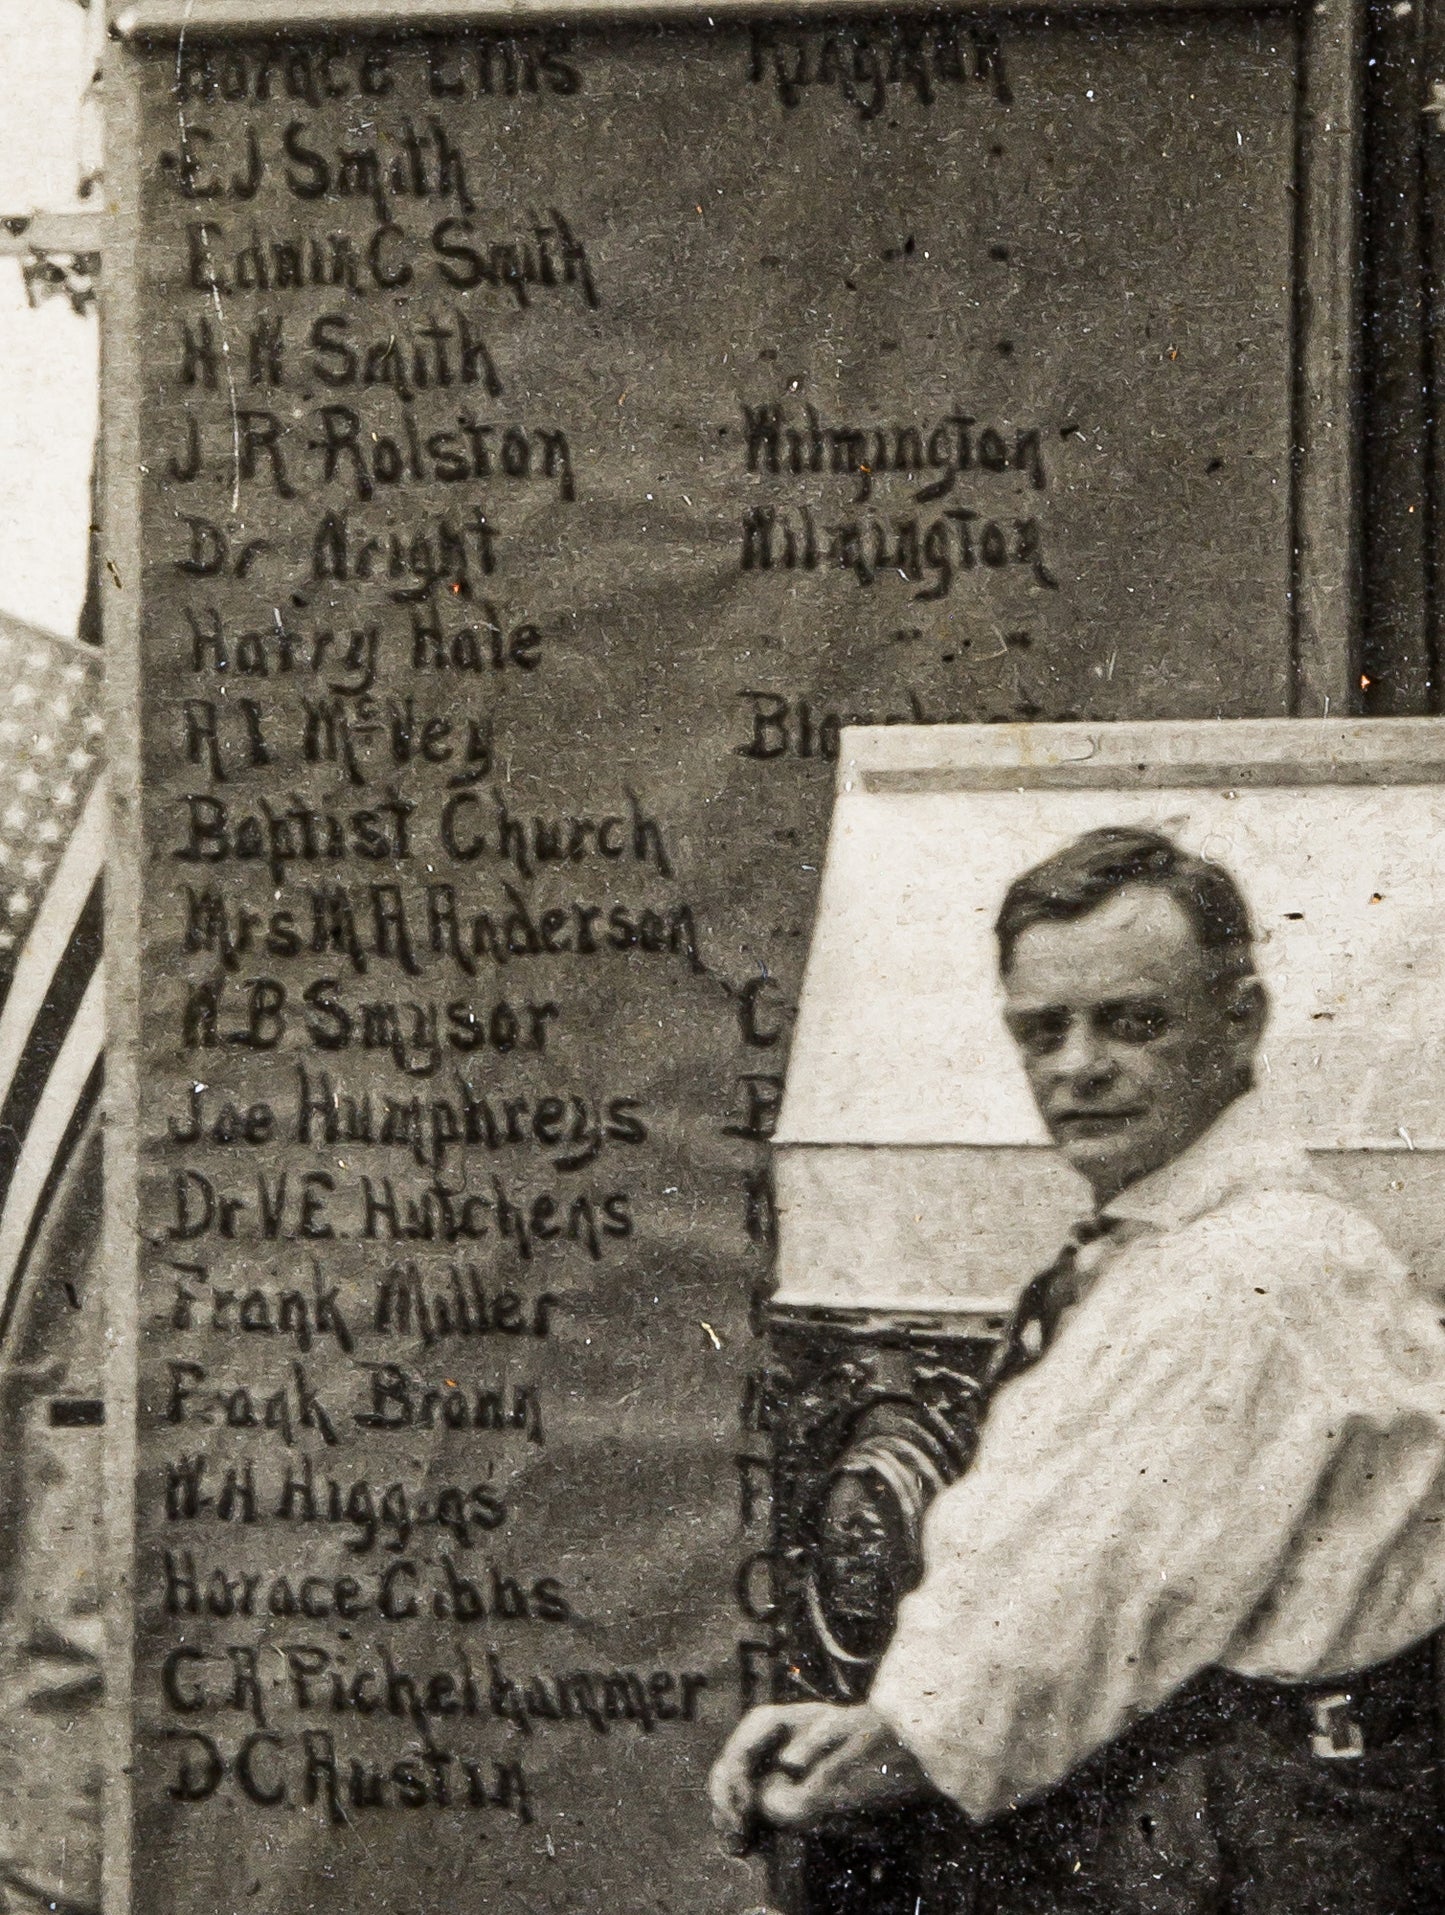 Horace Ellis Kingman
E J Smith " "
Edwin C Smith " "
H H Smith " "
J. R. Rolston Wilmington
Dr Wright Wilmington
Harry Hale " "
A I McVey
Baptist Church "
Mrs M A Anderson "
B Smysor C
Joe Humphreys
Dr V. E. Hutchens
Frank Miller
Frank Brown
W. H Higgins
Horace Gibbs
C. A. Pichelhammer
D. C. Austin